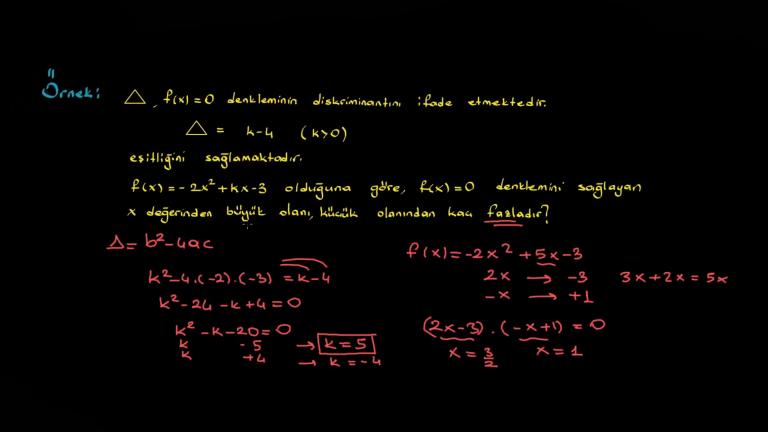 Örnek: △, f(x)=0 denkleminin diskriminantını ifade etmektedir.
△ = k-4 (k>0)
eşitliğini sağlamaktadır.
f(x)=-2x²+kx-3 olduğuna göre, f(x)=0 denklemini sağlayan
x değerinden büyük olanı, küçük olanından kaç fazladır?
Δ= b²-4ac
k²-4.(-2).(-3) = k-4
k²-24-k+4=0
k²-k-20=0
k -5 → k=5
k +4 → k=-4
f(x)=-2x²+5x-3
2x → -3 3x+2x=5x
-x → +1
(2x-3).(-x+1)=0
x=3/2 x=1